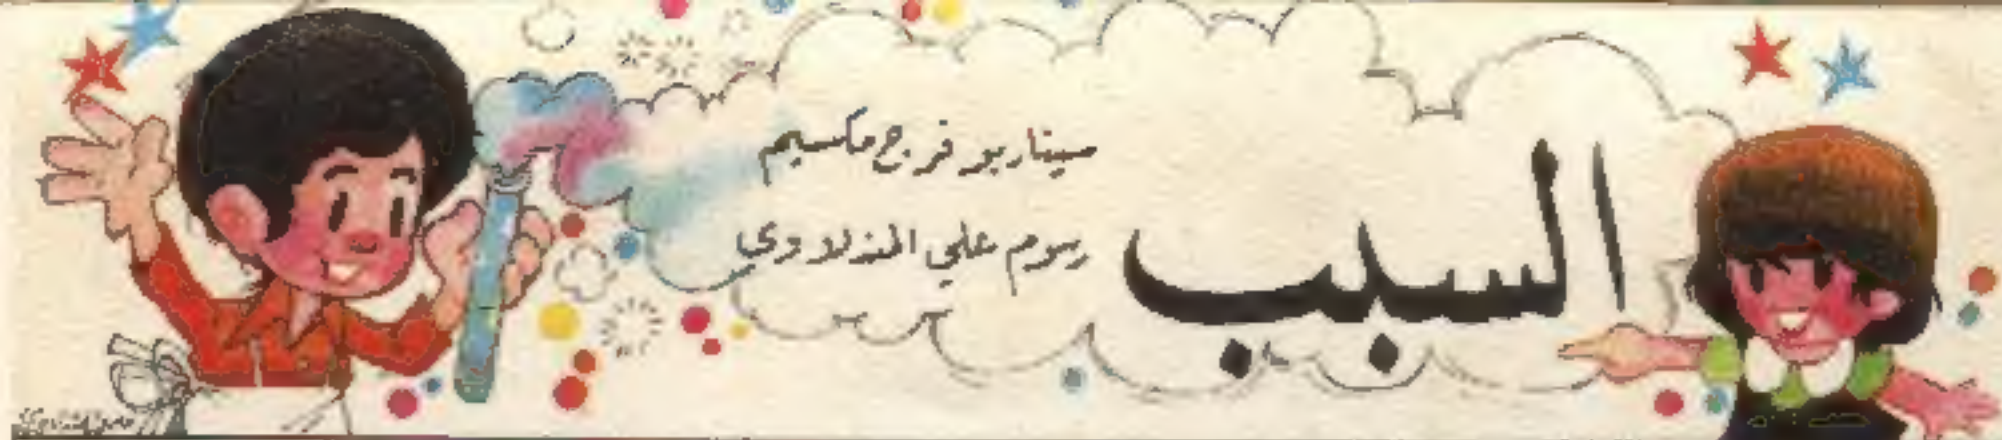 السبب
سيناريو فرج مكسيم
رسوم علي المندلاوي